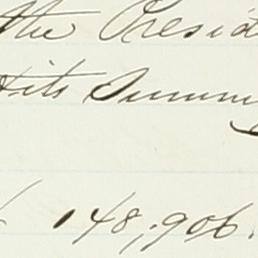 the Presid
its Summ
148,906.